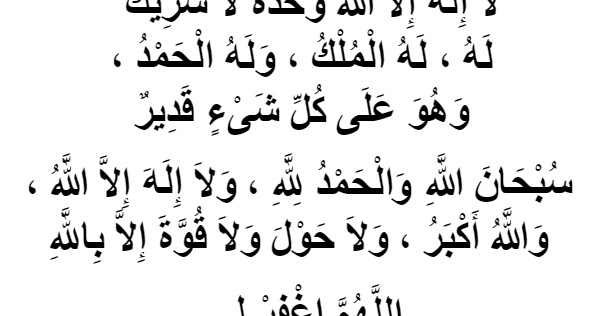 لَا إِلَهَ إِلاَّ اللهُ وَحْدَهُ لَا شَرِيْكَ
لَهُ ، لَهُ الْمُلْكُ ، وَلَهُ الْحَمْدُ ،
وَهُوَ عَلَى كُلِّ شَىْءٍ قَدِيرٌ
سُبْحَانَ اللَّهِ وَالْحَمْدُ لِلَّهِ ، وَلاَ إِلَهَ إِلاَّ اللَّهُ ،
وَاللَّهُ أَكْبَرُ ، وَلاَ حَوْلَ وَلاَ قُوَّةَ إِلاَّ بِاللَّهِ
اللَّهُمَّ اغْفِرْ لِي